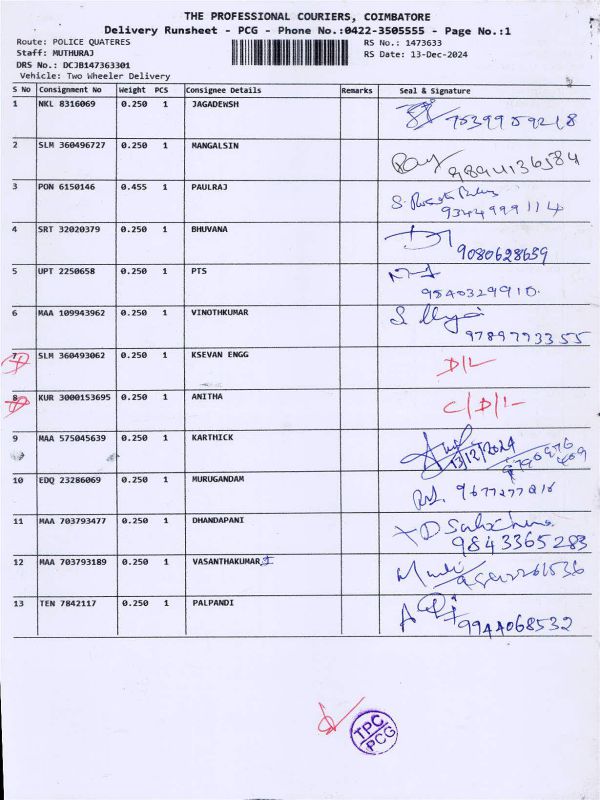 THE PROFESSIONAL COURIERS, COIMBATORE
Delivery Runsheet - PCG - Phone No.:0422-3505555 - Page No.:1
Route: POLICE QUATERES RS No.: 1473633
Staff: MUTHURAJ RS Date: 13-Dec-2024
DRS No.: DCJB147363301
Vehicle: Two Wheeler Delivery
S No Consignment No Weight PCS Consignee Details Remarks Seal & Signature
1 NKL 8316069 0.250 1 JAGADEWSH
2 SLM 360496727 0.250 1 MANGALSIN
9894136584
3 PON 6150146 0.455 1 PAULRAJ
9344999114
4 SRT 32020379 0.250 1 BHUVANA
9080628659
5 UPT 2250658 0.250 1 PTS
9840329910.
6 MAA 109943962 0.250 1 VINOTHKUMAR
9789773355
7 SLM 360493062 0.250 1 KSEVAN ENGG D/L
8 KUR 3000153695 0.250 1 ANITHA C/D/L
9 MAA 575045639 0.250 1 KARTHICK
13/12/2024
10 EDQ 23286069 0.250 1 MURUGANDAM
11 MAA 703793477 0.250 1 DHANDAPANI
9843365283
12 MAA 703793189 0.250 1 VASANTHAKUMAR
13 TEN 7842117 0.250 1 PALPANDI
9944068532
TPC
PCG